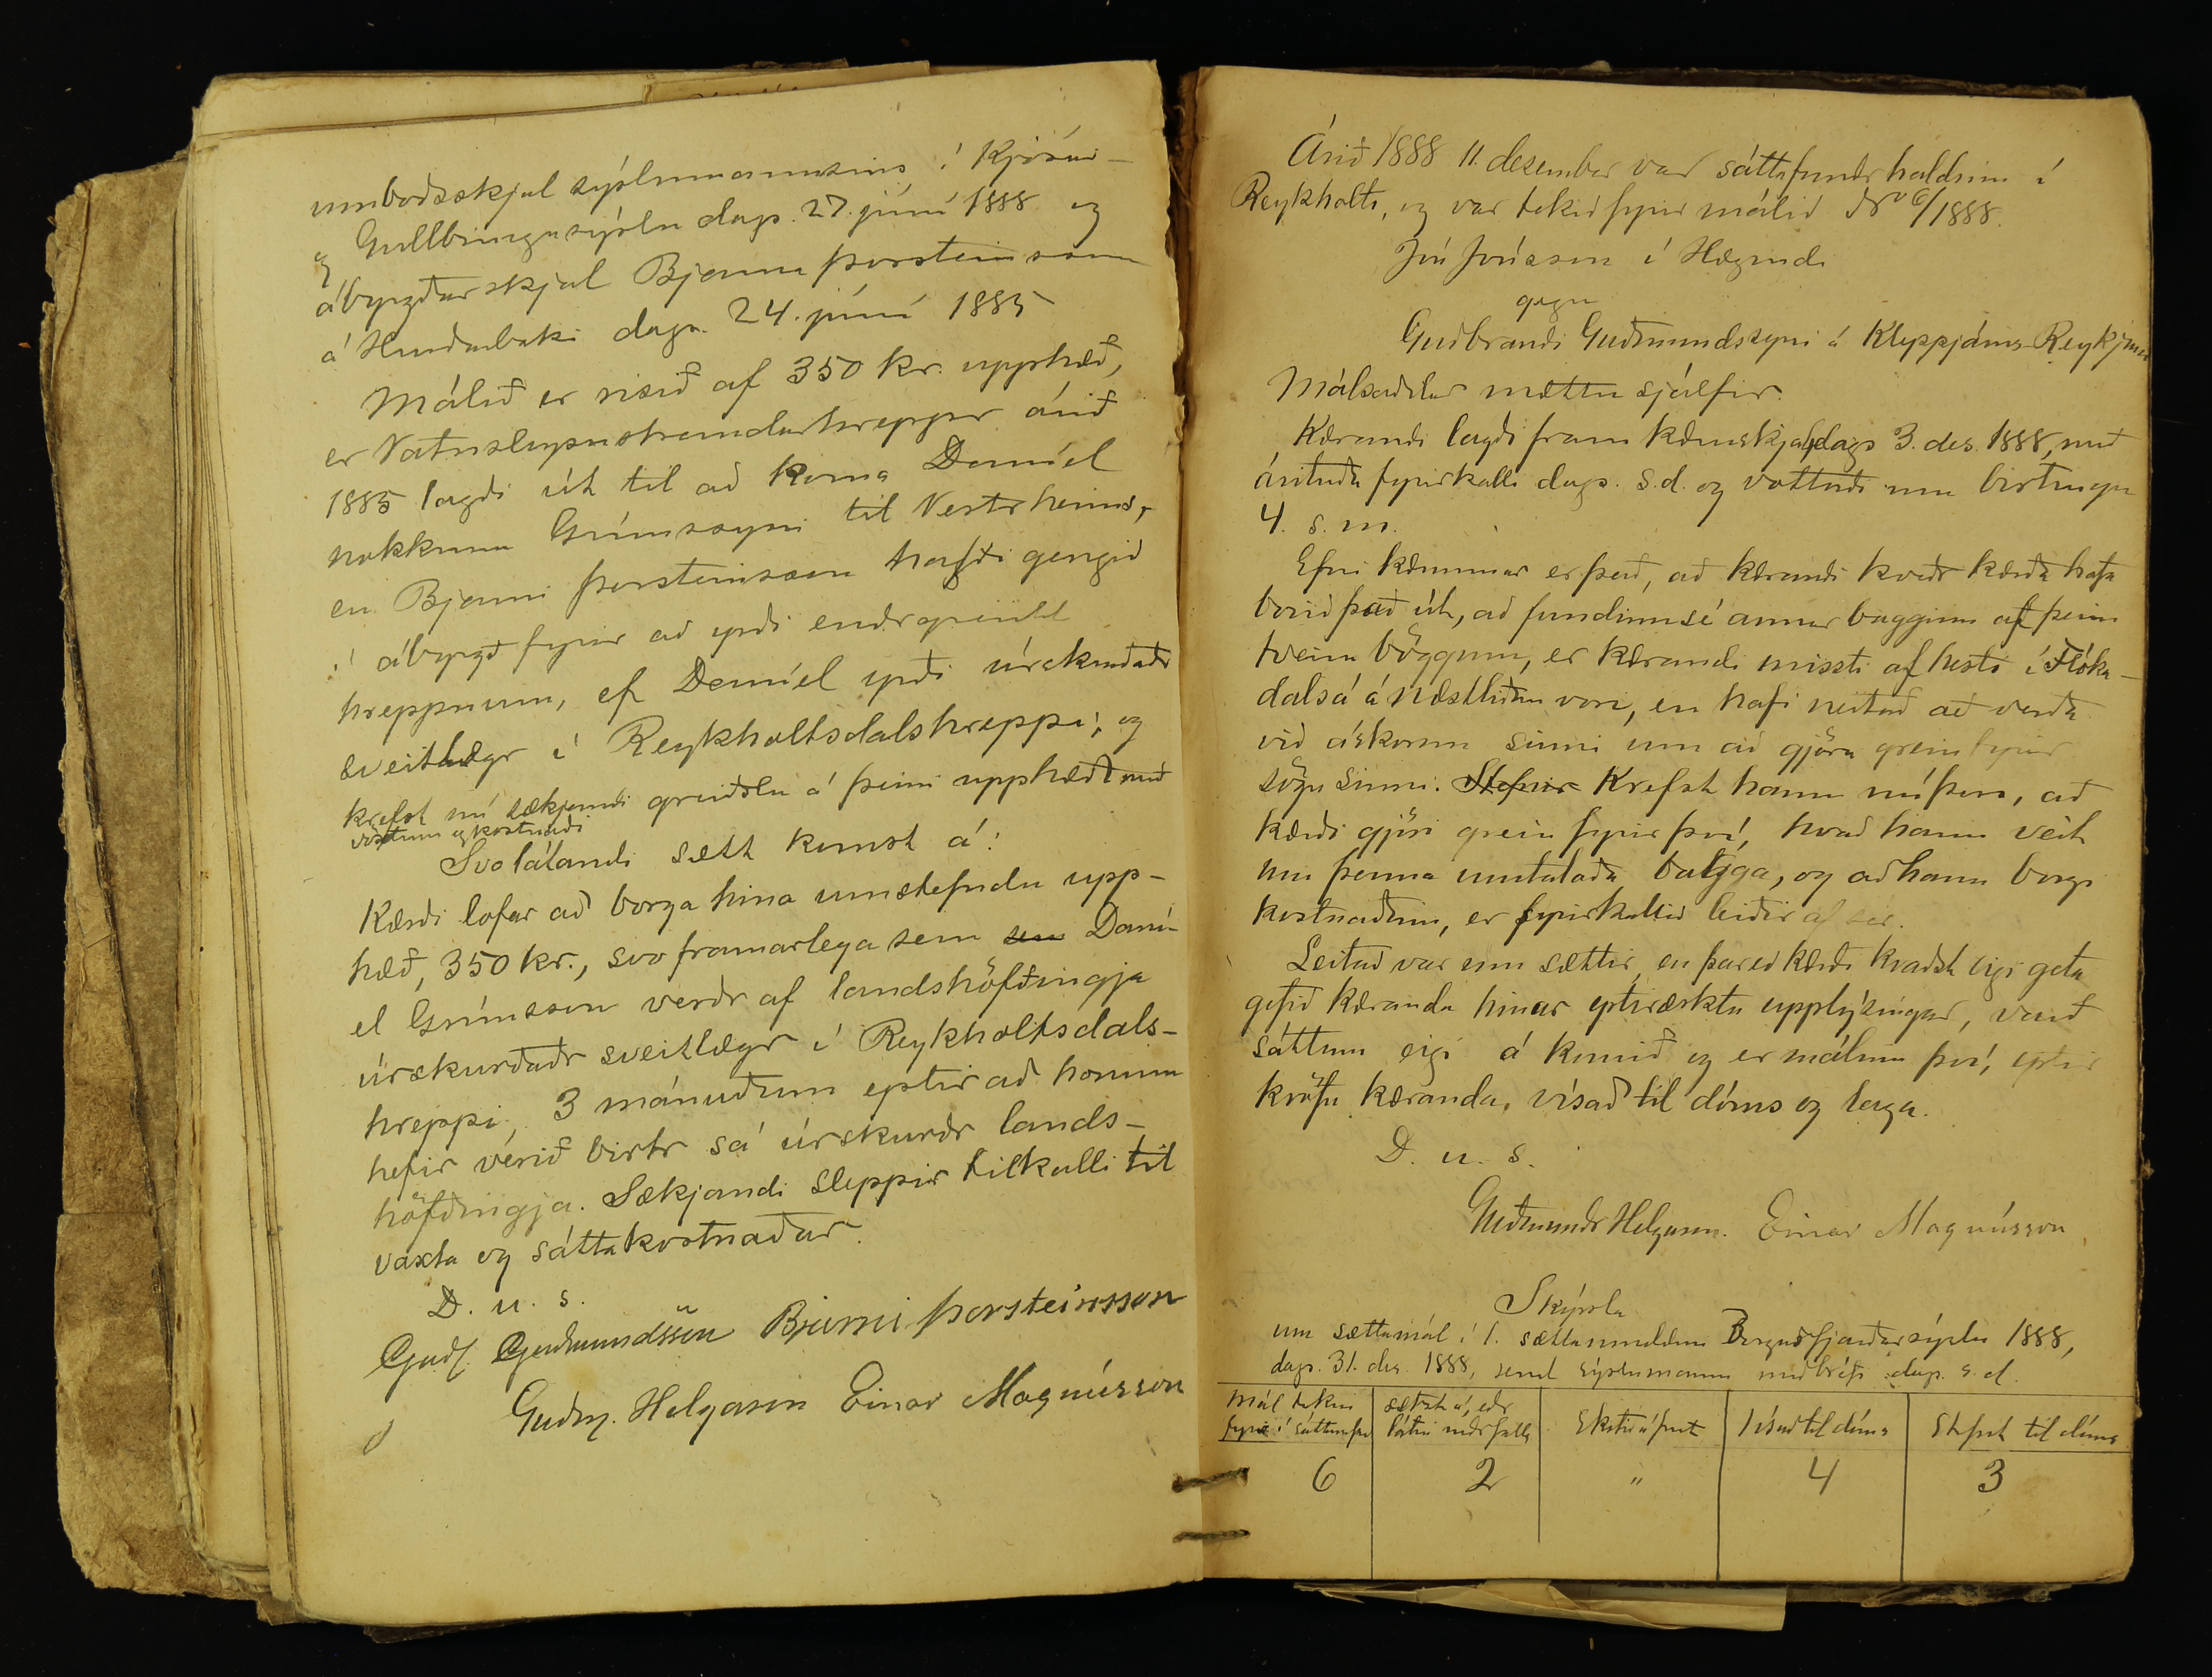 umboðsskjal sýslumannsins í Kjósar-
og Gullbringusýslu dags. 27. júní 1888 og
ábyrgðarskjal Bjarna Þorsteinssonar
á Hurðarbaki dags. 24. júní 1885
Málið er risið af 350 kr. upphæð,
er Vatnsleysustrandarhreppur árið
1885 lagði út til að koma Daníel
nokkrum Grímssyni til Vestrheims,
en Bjarni Þorsteinsson hafði gengið
í ábyrgð fyrir að yrði endrgreidd
hreppnum, ef Daníel yrði úrskurðaðr
sveitlægr í Reykholtsdalshreppi; og
krefst nú sækjandi greiðslu á þeirri upphæð með
vöxtum og kostnaði
Svolátandi sætt komst á:
Kærði lofar að borga hina umstefndu upp-
hæð, 350 kr., svo framarlega sem sem Daní-
el Grímsson verðr af landshöfðingja
úrskurðaðr sveitlægr í Reykholtsdals-
hreppi, 3 mánuðum eptir að honum
hefir verið birtr sá úrskurðr lands-
höfðingja. Sækjandi sleppir tilkalli til
vaxta og sáttakostnaðar.
D. u. s.
Guðm. Guðmundsson Bjarni Þorsteinsson
Guðm. Helgason Einar Magnússon
Árið 1888 11. desember var sáttafundr haldinn í
Reykholti, og var tekið fyrir málið No 6/1888.
Jón Jónsson í Hægindi
gegn
Guðbrandi Guðmundssyni á Kleppjárns-Reykjum
Málsaðilar mættu sjálfir.
Kærandi lagði fram kæruskjal, dags 3. des. 1888, með
árituðu fyrirkalli dags. s.d. og vottorði um birtingu
4. s. m.
Efni kærunnar er það, að kærandi kveðr kærða hafa
borið það út, að fundinn sé annar bagginn af þeim
tveim böggum, er kærandi missti af hesti í Flóka-
dalsá á næstliðnu vori, en hafi neitað að verða
við áskorun sinni um að gjöra grein fyrir
sögu sinni. Stefnir Krefst hann nú þess, að
kærði gjöri grein fyrir því, hvað hann veit
um þenna umtalaða bagga, og að hann borgi
kostnaðinn, er fyrirkallið leiðir af sér.
Leitað var um sættir, en þareð kærði kvaðst eigi geta
gefið kæranda hinar eptiræsktu upplýsingar, varð
sáttum eigi á komið og er málinu því, eptir
kröfu kæranda, vísað til dóms og laga.
D. u. s.
Guðmundr Helgason. Einar Magnússon
Skýrsla
um sættamál í 1. sáttaumdæmi Borgarfjarðarsýslu 1888,
dags. 31. des. 1888, send sýslumanni með bréfi dags. s. d.
Mál tekin
fyrir í sáttanefnd
sætzt á, eðr
látin niðr falla
Skotið á frest
Vísað til dóms
Stefnt til dóms
6
2
"
4
3